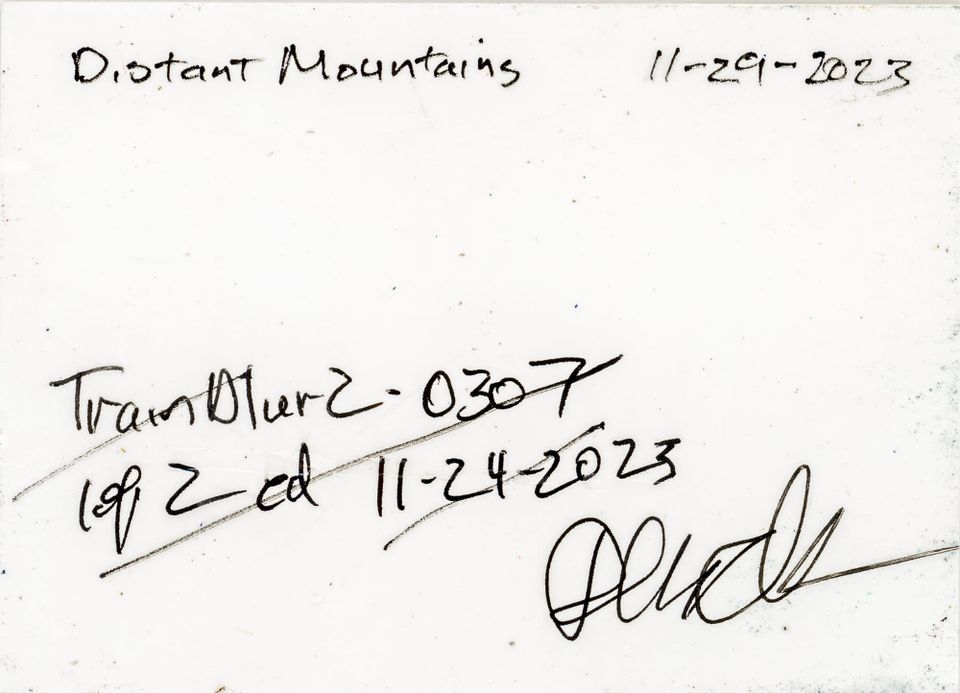 Distant Mountains 11-29-2023
TrainBlur2-0307
1 of 2 ed 11-24-2023